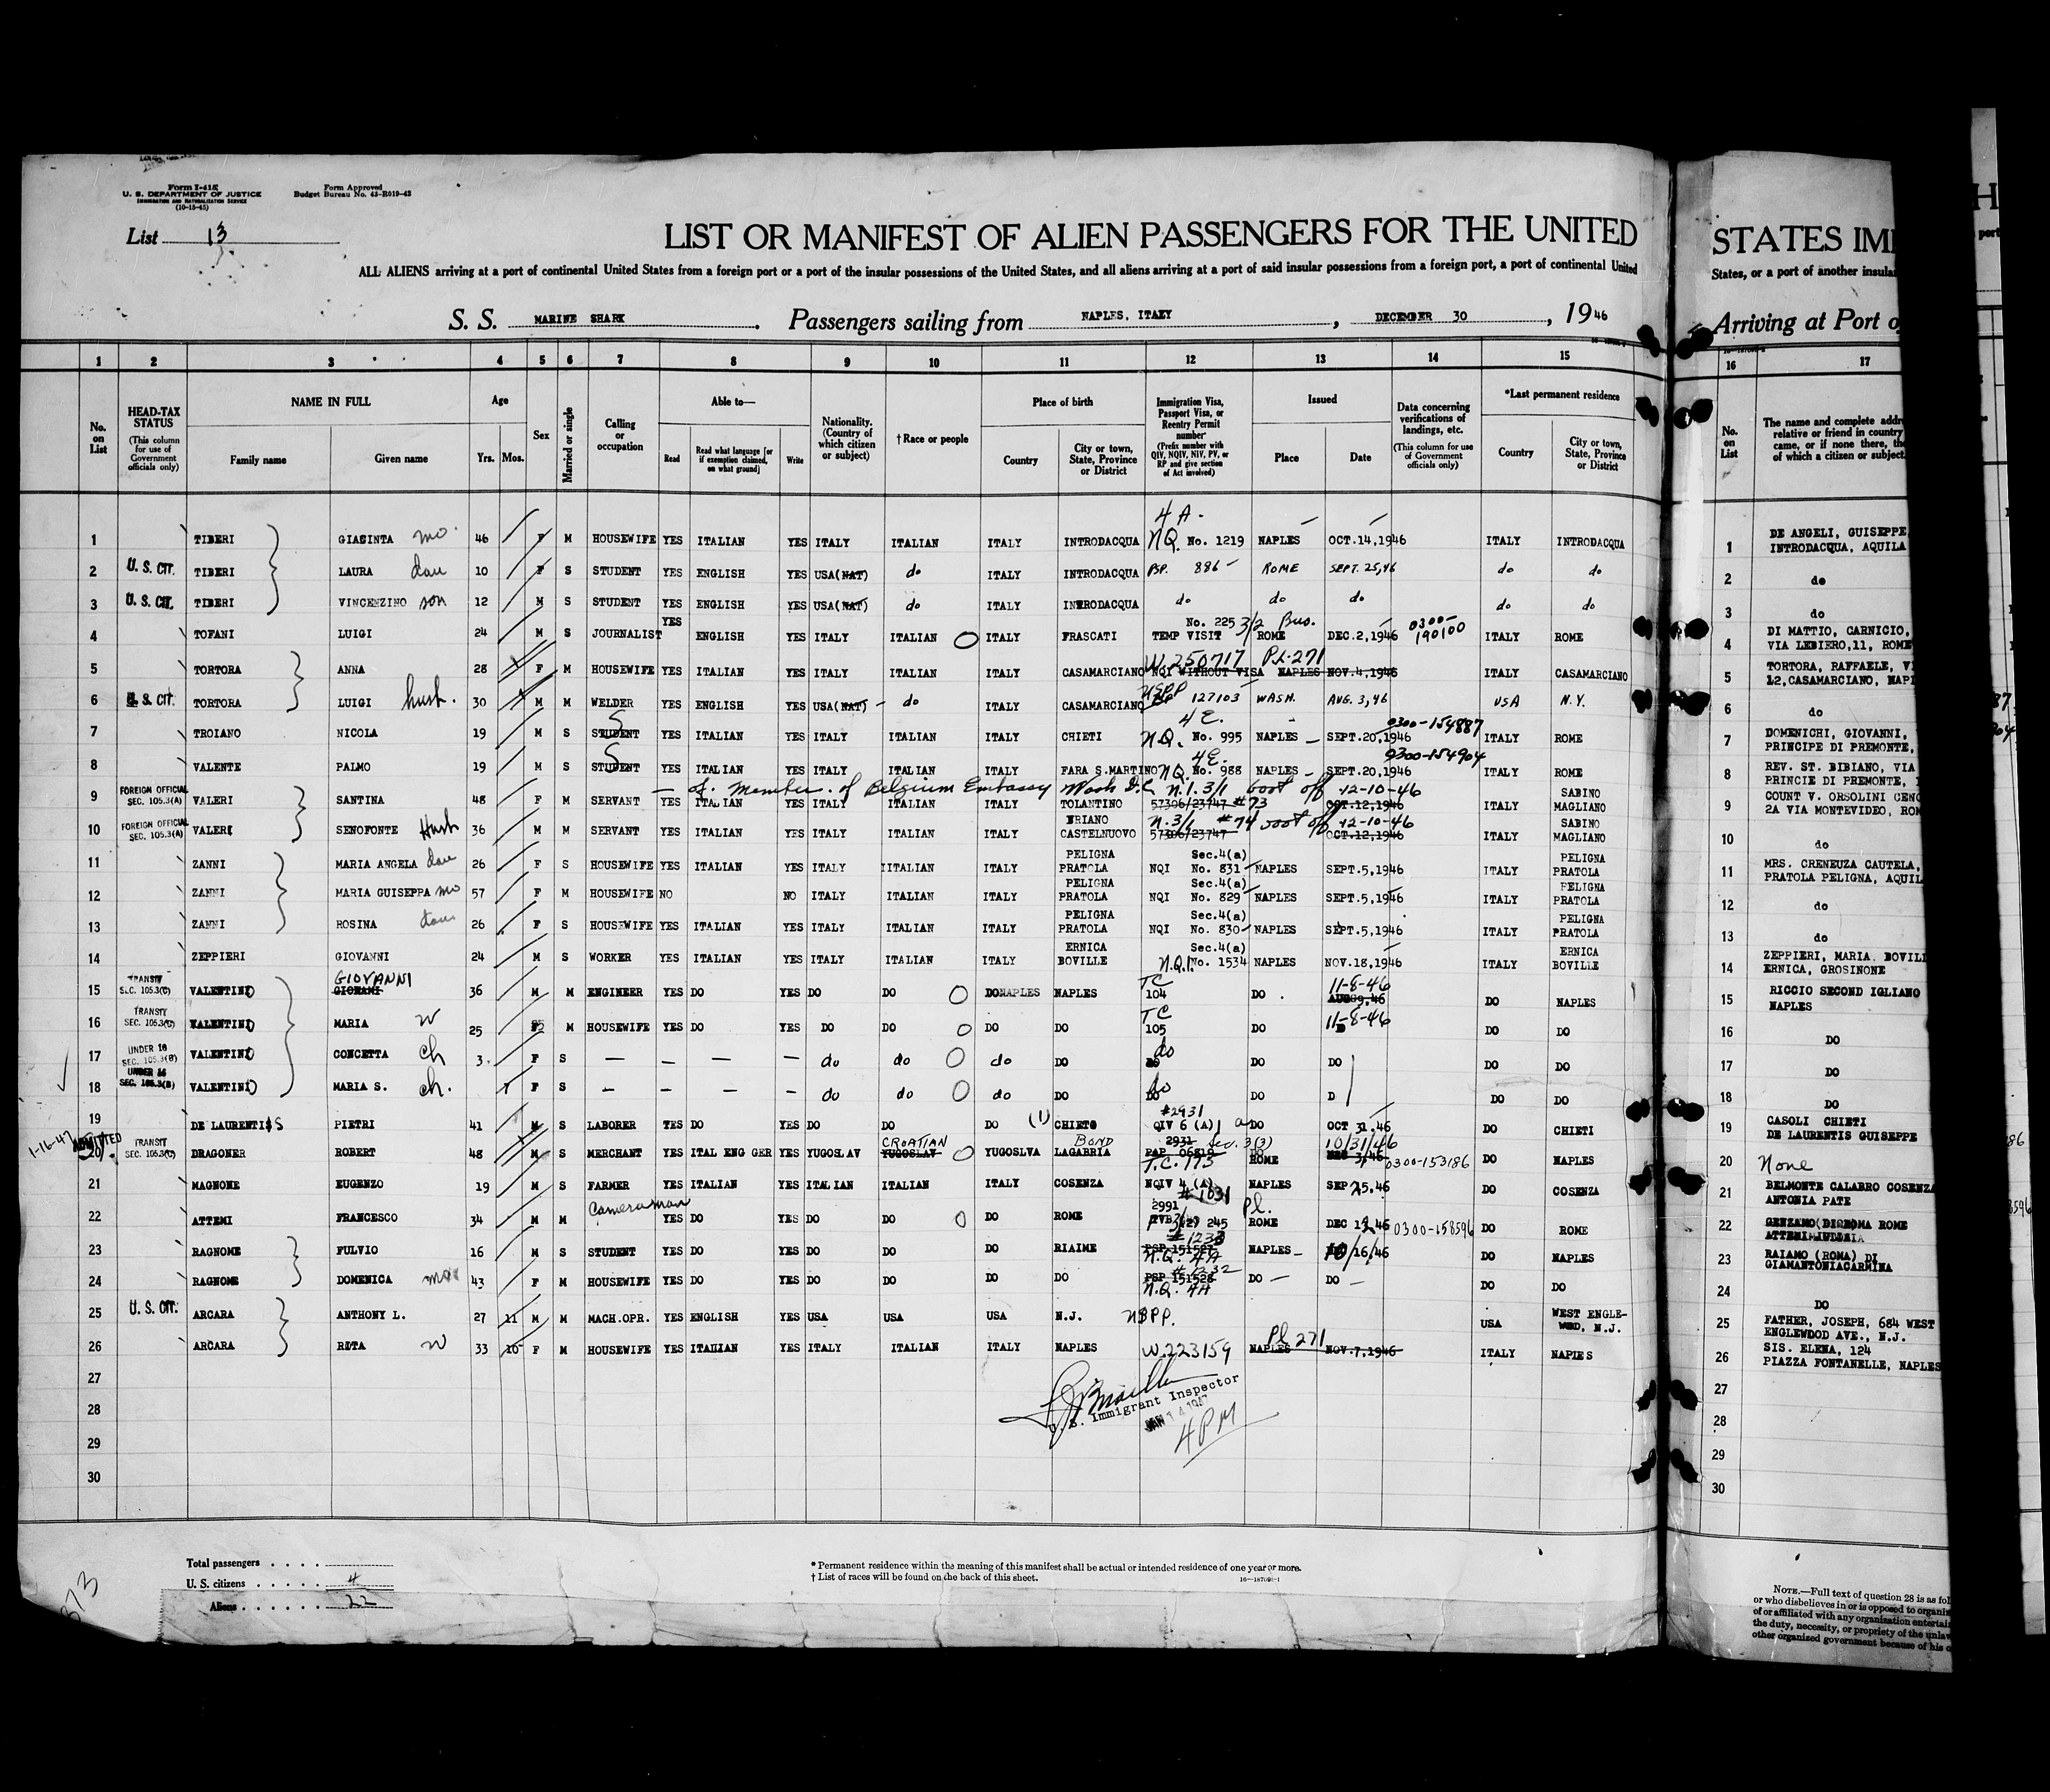 Form I-415
U. S. DEPARTMENT OF JUSTICE
IMMIGRATION AND NATURALIZATION SERVICE
(10-15-45)
Form Approved
Budget Bureau No. 43-R019-42
List 13
LIST OR MANIFEST OF ALIEN PASSENGERS FOR THE UNITED
ALL ALIENS arriving at a port of continental United States from a foreign port or a port of the insular possessions of the United States, and all aliens arriving at a port of said insular possessions from a foreign port, a port of continental United
S. S. MARINE SHARK. Passengers sailing from NAPLES, ITALY, DECEMBER 30, 1946
1 2 3 4 5 6 7 8 9 10 11 12 13 14 15
No. on List
HEAD-TAX STATUS (This column for use of Government officials only)
NAME IN FULL
Family name
Given name
Age
Yrs. Mos.
Sex
Married or single
Calling or occupation
Able to—
Read
Read what language [or if exemption claimed, on what ground]
Write
Nationality. (Country of which citizen or subject)
†Race or people
Place of birth
Country
City or town, State, Province or District
Immigration Visa, Passport Visa, or Reentry Permit number (Prefix number with QIV, NQIV, NIV, PV, or RP and give section of Act involved)
Issued
Place
Date
Data concerning verifications of landings, etc. (This column for use of Government officials only)
*Last permanent residence
Country
City or town, State, Province or District
4 A.
1 TIBERI GIASINTA mo. 46 F M HOUSEWIFE YES ITALIAN YES ITALY ITALIAN ITALY INTRODACQUA N.Q. No. 1219 NAPLES OCT.14,1946 ITALY INTRODACQUA
2 U. S. CIT. TIBERI LAURA dau 10 F S STUDENT YES ENGLISH YES USA(NAT) do ITALY INTRODACQUA PSP. 886 ROME SEPT. 25,46 do do
3 U. S. CIT. TIBERI VINCENZINO son 12 M S STUDENT YES ENGLISH YES USA(NAT) do ITALY INTRODACQUA do do do do do
4 TOFANI LUIGI 24 M S JOURNALIST YES ENGLISH YES ITALY ITALIAN ITALY FRASCATI No. 225 3/2 Bus. TEMP VISIT ROME DEC.2,1946 0300-190100 ITALY ROME
5 TORTORA ANNA 28 F M HOUSEWIFE YES ITALIAN YES ITALY ITALIAN ITALY CASAMARCIANO W.250717 PL-271 NQI WITHOUT VISA NAPLES NOV.4,1946 ITALY CASAMARCIANO
6 U. S. CIT. TORTORA LUIGI husb. 30 M M WELDER YES ENGLISH YES USA(NAT) - do ITALY CASAMARCIANO USPP 127103 WASH. AUG. 3,46 USA N.Y.
7 TROIANO NICOLA 19 M S STUDENT S YES ITALIAN YES ITALY ITALIAN ITALY CHIETI 4 E. N.Q. No. 995 NAPLES SEPT.20,1946 0300-154887 ITALY ROME
8 VALENTE PALMO 19 M S STUDENT S YES ITALIAN YES ITALY ITALIAN ITALY FARA S.MARTINO 4E. NQ. No. 988 NAPLES SEPT.20,1946 0300-154904 ITALY ROME
— of Member of Belgium Embassy Wash D.C.
9 FOREIGN OFFICIAL SEC. 105.3(A) VALERI SANTINA 48 F M SERVANT YES ITALIAN YES ITALY ITALIAN ITALY TOLANTINO N.I. 3/1 57306/23747 #73 12-10-46 OCT.12,1946 ITALY SABINO MAGLIANO
10 FOREIGN OFFICIAL SEC. 105.3(A) VALERI SENOFONTE Husb 36 M M SERVANT YES ITALIAN YES ITALY ITALIAN ITALY ERIANO CASTELNUOVO N.3/1 #74 57306/23747 12-10-46 OCT.12,1946 ITALY SABINO MAGLIANO
11 ZANNI MARIA ANGELA dau 26 F S HOUSEWIFE YES ITALIAN YES ITALY IITALIAN ITALY PELIGNA PRATOLA NQI Sec.4(a) No. 831 NAPLES SEPT.5,1946 ITALY PELIGNA PRATOLA
12 ZANNI MARIA GUISEPPA mo 57 F M HOUSEWIFE NO NO ITALY ITALIAN ITALY PELIGNA PRATOLA NQI Sec.4(a) No. 829 NAPLES SEPT.5,1946 ITALY PELIGNA PRATOLA
13 ZANNI ROSINA dau 26 F S HOUSEWIFE YES ITALIAN YES ITALY ITALIAN ITALY PELIGNA PRATOLA NQI Sec.4(a) No. 830 NAPLES SEPT.5,1946 ITALY PELIGNA PRATOLA
14 ZEPPIERI GIOVANNI 24 M S WORKER YES ITALIAN YES ITALY ITALIAN ITALY ERNICA BOVILLE N.Q.I. Sec.4(a) No. 1534 NAPLES NOV.18,1946 ITALY ERNICA BOVILLE
15 TRANSIT SEC. 105.3(C) VALENTINO GIOVANNI 36 M M ENGINEER YES DO YES DO DO DO NAPLES NAPLES TC 104 DO 11-8-46 DO NAPLES
16 TRANSIT SEC. 105.3(C) VALENTINO MARIA W 25 F M HOUSEWIFE YES DO YES DO DO DO DO TC 105 DO 11-8-46 DO DO
17 UNDER 16 SEC. 105.3(B) VALENTINO CONCETTA ch 3 F S — — — — do do do DO do DO DO DO DO
18 UNDER 16 SEC. 105.3(B) VALENTINO MARIA S. ch. 7 F S — — — — do do do DO do DO D DO DO
19 DE LAURENTIS PIETRI 41 M S LABORER YES DO YES DO DO DO (1) CHIETO #2931 QIV 6 (A) DO OCT 31.46 DO CHIETI
1-16-47 ADMITTED
20 TRANSIT SEC. 105.3(C) DRAGONER ROBERT 48 M S MERCHANT YES ITAL ENG GER YES YUGOSLAV CROATIAN YUGOSLAV YUGOSLVA LAGABRIA BOND 2931 Sec. 3(3) T.C. 173 ROME 10/31/46 0300-153186 DO NAPLES
21 MAGNONE EUGENZO 19 M S FARMER YES ITALIAN YES ITALIAN ITALIAN ITALY COSENZA NQIV 4 (A) #1031 NAPLES SEP 25.46 DO COSENZA
22 ATTEMI FRANCESCO 34 M M Cameraman YES DO YES DO DO DO ROME 2991 245 Pl. ROME DEC 12,46 0300-158596 DO ROME
23 RAGNOME FULVIO 16 M S STUDENT YES DO YES DO DO DO RIAIME #1233 PSP 151527 N.Q. 4A NAPLES 10/16/46 DO NAPLES
24 RAGNOME DOMENICA mo 43 F M HOUSEWIFE YES DO YES DO DO DO DO #1232 PSP 151528 N.Q. 4A DO DO DO DO
25 U. S. CIT. ARCARA ANTHONY L. 27 11 M M MACH.OPR. YES ENGLISH YES USA USA USA N.J. USPP. USA WEST ENGLE-WOOD, N.J.
26 ARCARA RITA W 33 10 F M HOUSEWIFE YES ITALIAN YES ITALY ITALIAN ITALY NAPLES W.223159 Pl 271 NAPLES NOV.7,1946 ITALY NAPLES
27
28
29
30
U. S. Immigrant Inspector
JAN 14 1947
4PM
Total passengers
U. S. citizens 4
Aliens 22
373
* Permanent residence within the meaning of this manifest shall be actual or intended residence of one year or more.
† List of races will be found on the back of this sheet.
STATES IMM
States, or a port of another insula
Arriving at Port o
16 17
No. on List
The name and complete addre
relative or friend in country
came, or if none there, the
of which a citizen or subject
1 DE ANGELI, GUISEPPE,
INTRODACQUA, AQUILA
2 do
3 do
4 DI MATTIO, CARNICIO,
VIA LEBIERO,11, ROME
5 TORTORA, RAFFAELE, VI
12,CASAMARCIANO, NAPL
6 do
7 DOMENICHI, GIOVANNI,
PRINCIPE DI PREMONTE,
8 REV. ST. BIBIANO, VIA
PRINCIE DI PREMONTE,
9 COUNT V. ORSOLINI CENC
2A VIA MONTEVIDEO, ROM
10 do
11 MRS. CRENEUZA CAUTELA,
PRATOLA PELIGNA, AQUIL
12 do
13 do
14 ZEPPIERI, MARIA. BOVILL
ERNICA, GROSINONE
15 RICCIO SECOND IGLIANO
NAPLES
16 DO
17 DO
18 DO
19 CASOLI CHIETI
DE LAURENTIS GUISEPPE
20 None
21 BELMONTE CALABRO COSENZA
ANTONIA PATE
22 GENZANO ROMA ROME
23 RAIAMO (ROMA) DI
GIAMANTONIACARMINA
24 DO
25 FATHER, JOSEPH, 684 WEST
ENGLEWOOD AVE., N.J.
26 SIS. ELENA, 124
PIAZZA FONTANELLE, NAPLES
27
28
29
30
NOTE.—Full text of question 28 is as fol
or who disbelieves in or is opposed to organiz
of or affiliated with any organization entertain
the duty, necessity, or propriety of the unlaw
other organized government because of his o